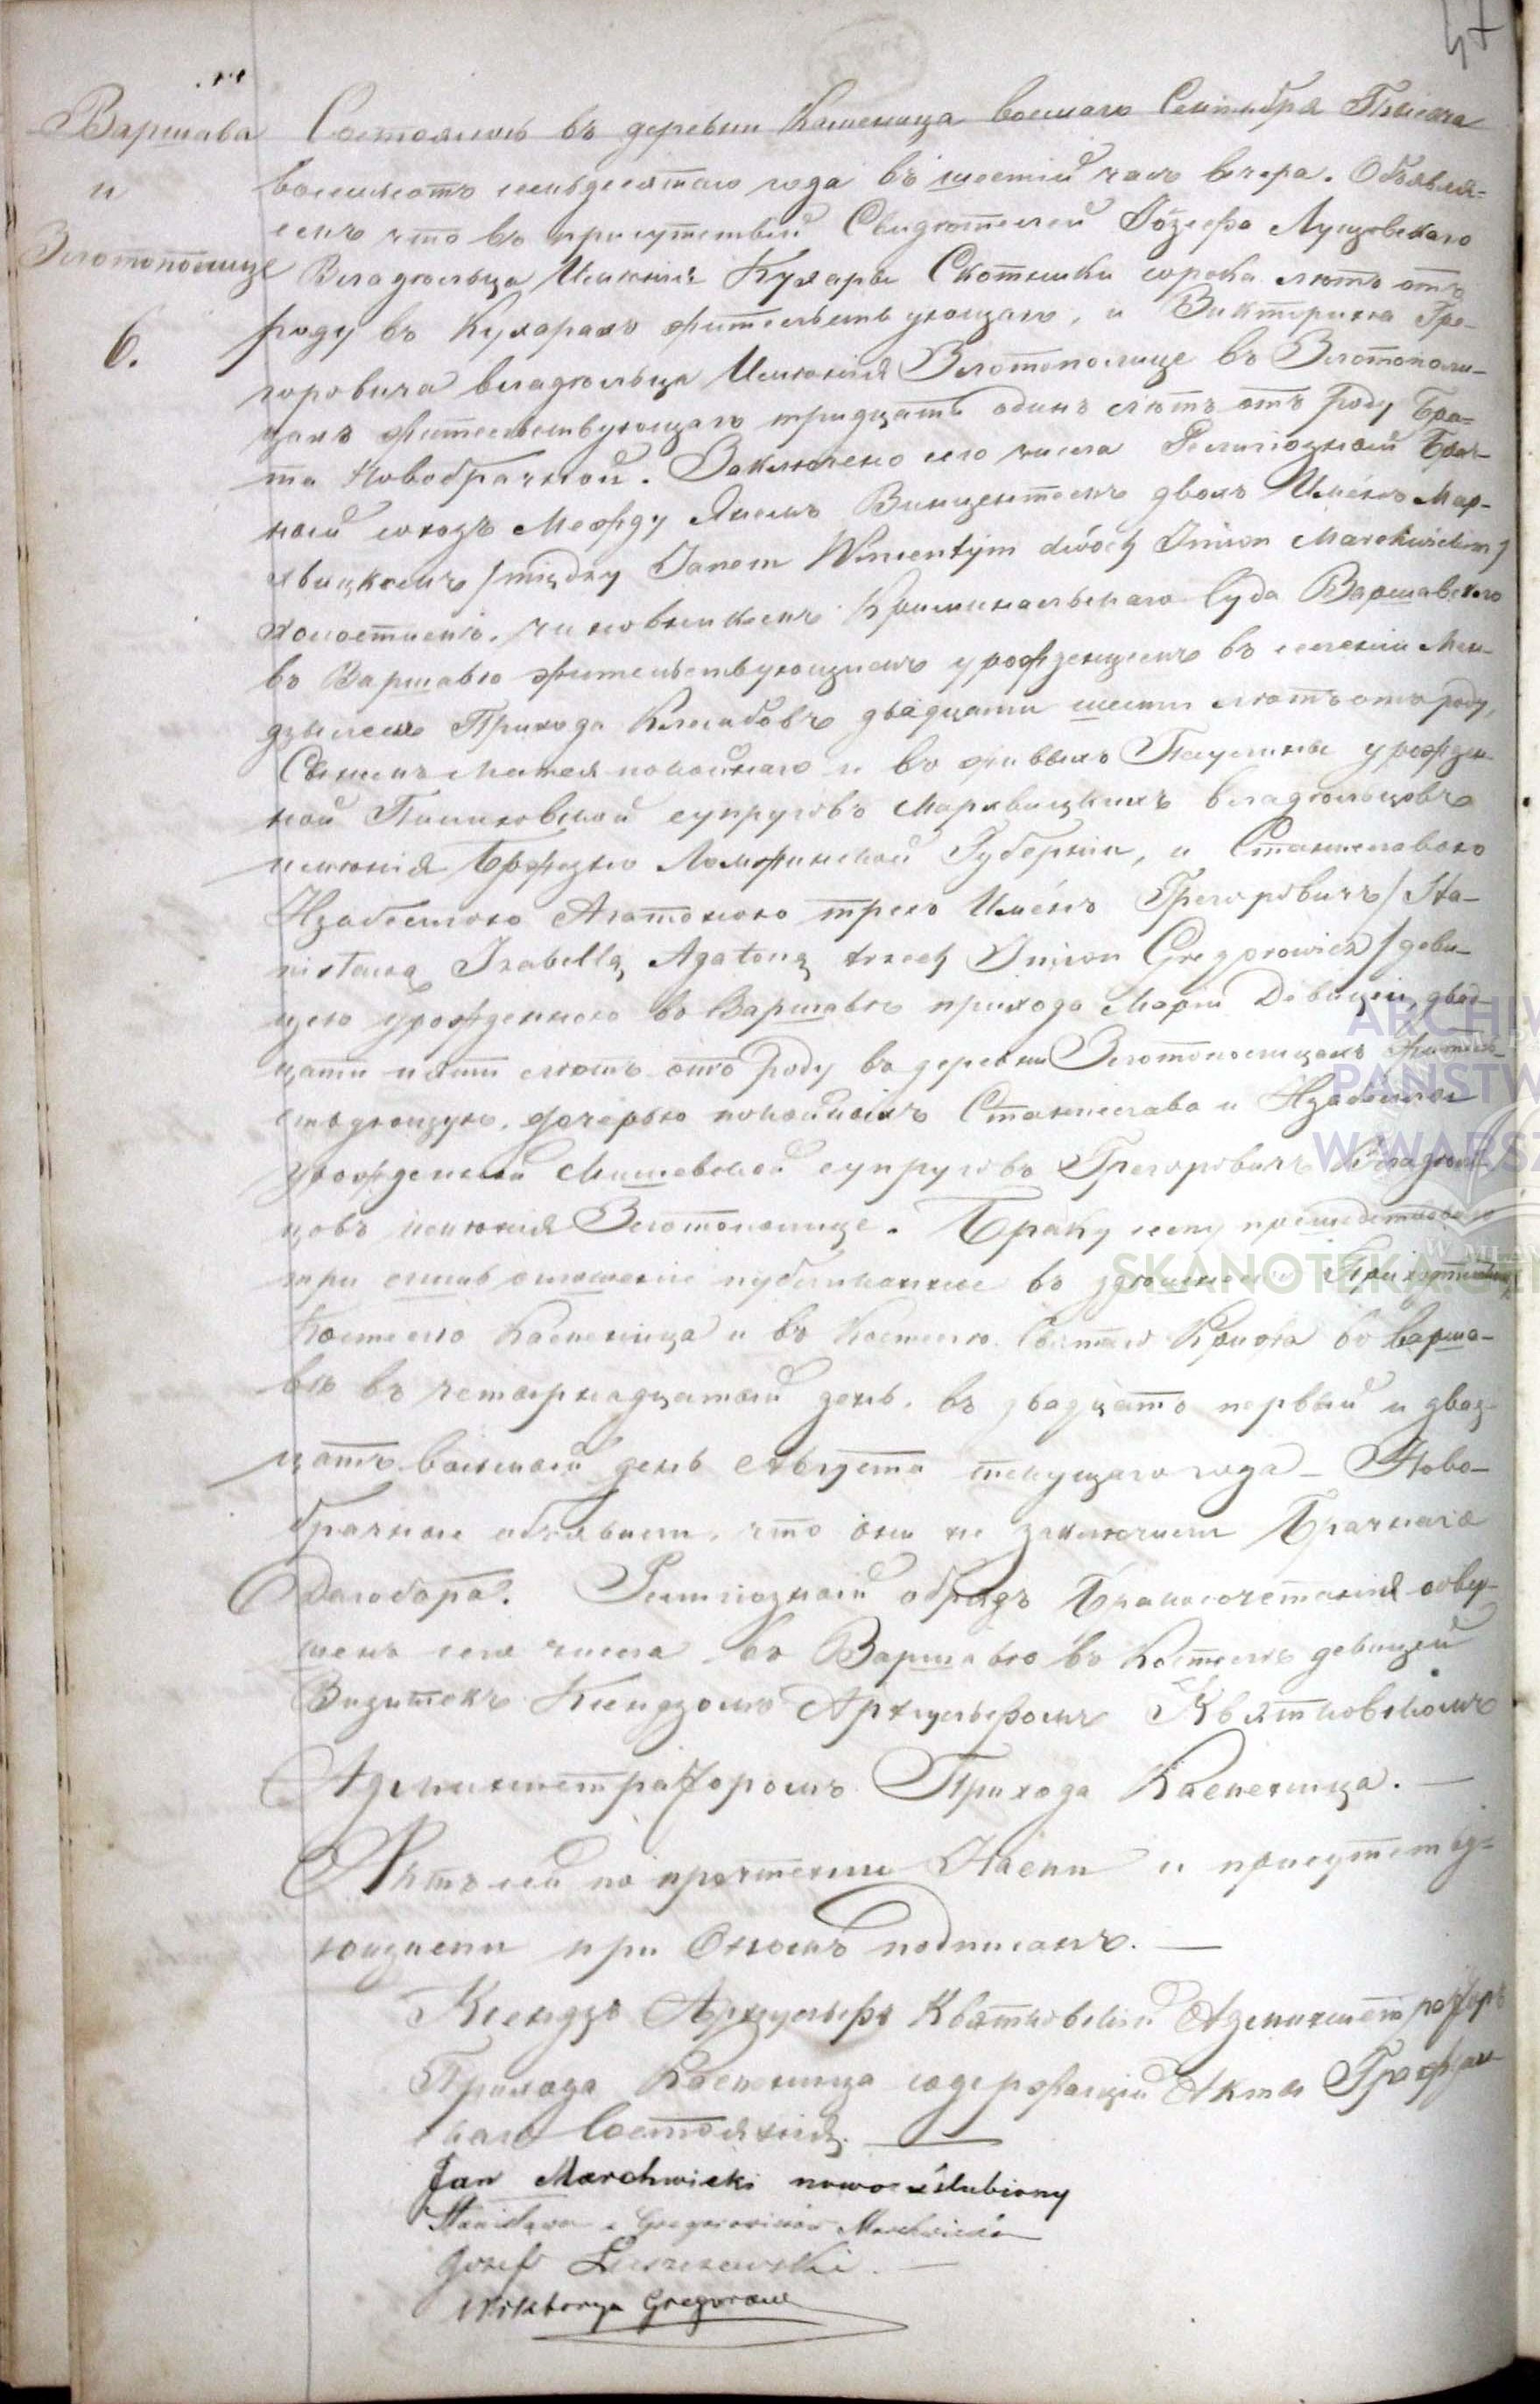 47
Варшава
и
Злотополице
6.
Состоялось въ деревни Косменица восмаго Сентября Тысяча
восемсотъ семьдесятаго года въ шестій часъ вечера. Объявля=
емъ что въ присутствіи Свидѣтелей Іозефа Лущевскаго
Владѣльца Имѣнія Кухары Скотники сорока лѣтъ отъ
роду въ Кухарахъ жительствующаго, и Викторина Гре-
горовича владѣльца Имѣнія Злотополице въ Злотополи-
цахъ жительствующаго тридцать одинъ лѣтъ отъ роду Бра-
та Новобрачной. Заключено сего числа Религіозный Брач-
ный союзъ Между Яномъ Винцентемъ двохъ Имёнъ Мар-
хвицкимъ /między Janem Wincentym dwóch Imion Marchwickim/
холостымъ, чиновникомъ Криминальнаго Суда Варшавскаго
въ Варшавѣ жительствующимъ урожденцемъ въ селеніи
Прихода двадцати шести лѣтъ отъ роду,
Сыномъ Матея покойнаго и въ живыхъ Паулины урожден-
ной супруговъ Мархвицкихъ владѣльцовъ
имѣнія Ломжинской Губерніи, и Станиславою
Изабеллою Агатоною трехъ Имёнъ Грегоровичъ /Sta-
nisławą Izabellą Agatoną trzech Imion Gregorowicz/ деви-
цею урожденною въ Варшавѣ прихода Маріи Девицы, двад-
цати пяти лѣтъ отъ роду въ деревни Злотополицахъ житель-
ствующую, дочерью покойныхъ Станислава и Изабеллы
урожденной Мишевской супруговъ Грегоровичъ Владѣль-
цовъ имѣнія Злотополице. Браку сему предшествовало
три оглашеніе публичныя въ здѣшнемъ Приходскомъ
Костелѣ Косменица и въ Костелѣ Святаго Крижа въ Варша-
вѣ въ четырнадцатый день, въ двадцать первый и двад-
цать восьмой день Августа текущаго года — Ново-
брачные объявили, что они не заключили Брачнаго
Договора. Религіозный обрядъ Бракосочетанія совер-
шенъ сего числа въ Варшавѣ въ Костелѣ девицей
Визитокъ Ксендзомъ Арнульфомъ Квятковскимъ
Администраторомъ Прихода Косменица. —
Актъ сей по прочтеніи Нами и присутству-
ющими при Ономъ подписанъ. —
Ксендзъ Арнульфъ Квятковскій Администраторъ
Прихода Косменица содержащій Акты Граждан-
скаго Состоянія. —
Jan Marchwicki nowozaślubiony
Stanisława z Gregorowiczów Marchwicka
Józef Łuszczewski. —
Wiktoryn Gregorowicz
ARCHIW
PAŃSTW
W WARSZ
SKANOTEKA.GEN